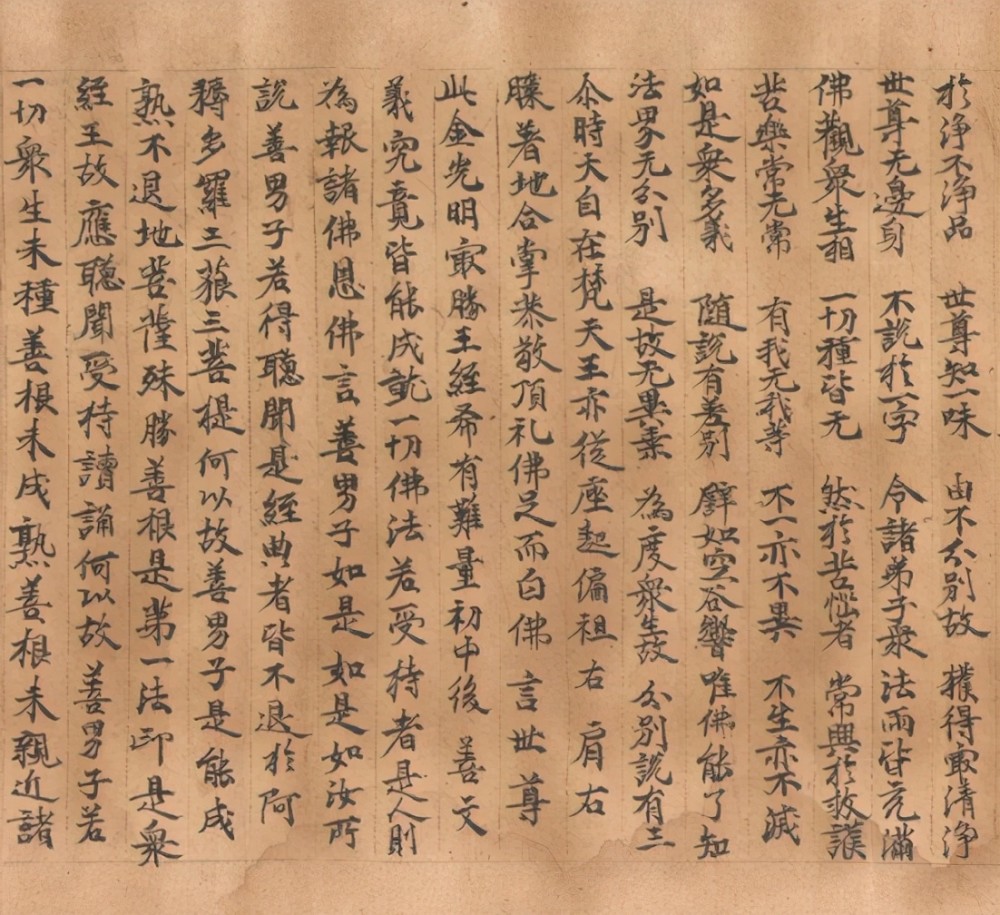 於淨不淨品 世尊知一味 由不分別故 獲得㝡清淨
世尊无邊身 不說於一字 令諸弟子衆 法雨皆充滿
佛觀衆生相 一切種皆无 然於苦惱者 常興於救護
苦樂常无常 有我无我等 不一亦不異 不生亦不滅
如是衆多義 隨說有差別 譬如空谷響 唯佛能了知
法界无分別 是故无異乘 為度衆生故 分別說有三
尒時大自在梵天王亦從座起偏袒右肩右
膝著地合掌恭敬頂礼佛足而白佛言世尊
此金光明㝡勝王經希有難量初中後善文
義究竟皆能成就一切佛法若受持者是人則
為報諸佛恩佛言善男子如是如是如汝所
說善男子若得聽聞是經典者皆不退於阿
耨多羅三藐三菩提何以故善男子是能成
熟不退地菩薩殊勝善根是第一法印是衆
經王故應聽聞受持讀誦何以故善男子若
一切衆生未種善根未成熟善根未親近諸